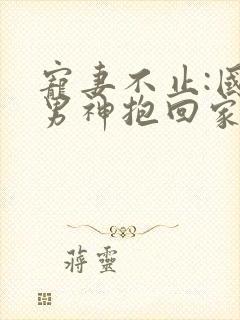 寵妻不止:國
男神抱回家
蔣靈